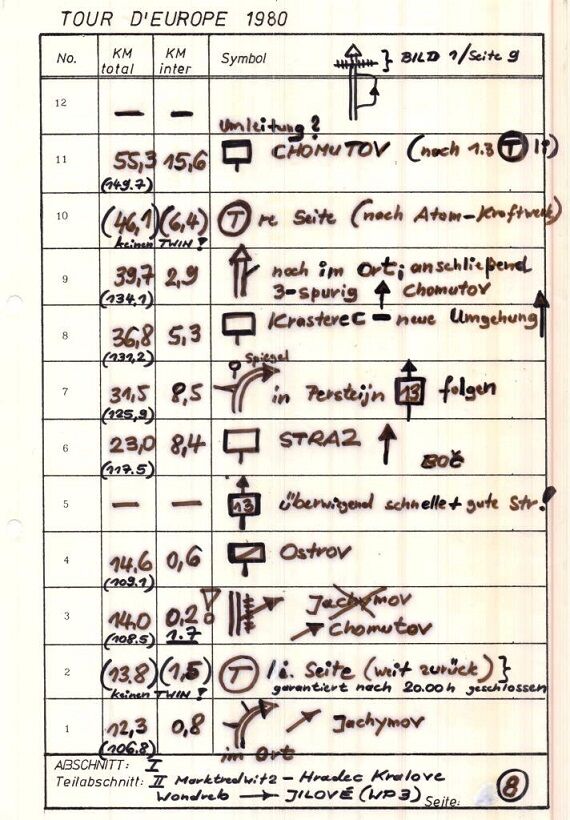 TOUR D'EUROPE 1980
No. KM total KM inter Symbol } BILD 1/Seite 9
12 — —
Umleitung?
11 55,3 15,6 CHOMUTOV (nach 1.3 T li)
(149.7)
10 (46,1) (6,4) T re Seite (nach Atom-Kraftwerk)
keinen TWIN!
9 39,7 2,9 noch im Ort; anschließend
(134.1) 3-spurig Chomutov
8 36,8 5,3 Klasterec – neue Umgehung
(131,2)
Spiegel
7 31,5 8,5 in Persteijn 13 folgen
(125,9)
6 23,0 8,4 STRAZ
(117.5) BOČ
5 — — 13 überwigend schnelle + gute Str.!
4 14.6 0,6 Ostrov
(109.1)
3 14,0 0,2 ! Jachymov
(108.5) 1.7 Chomutov
2 (13.8) (1,5) T li. Seite (weit zurück) }
keinen TWIN! garantiert nach 20.00h geschlossen
1 12,3 0,8 Jachymov
(106.8) im Ort
ABSCHNITT: I
Teilabschnitt: II Marktredwitz – Hradec Kralove
Wondreb → JILOVÉ (WP3) Seite: 8